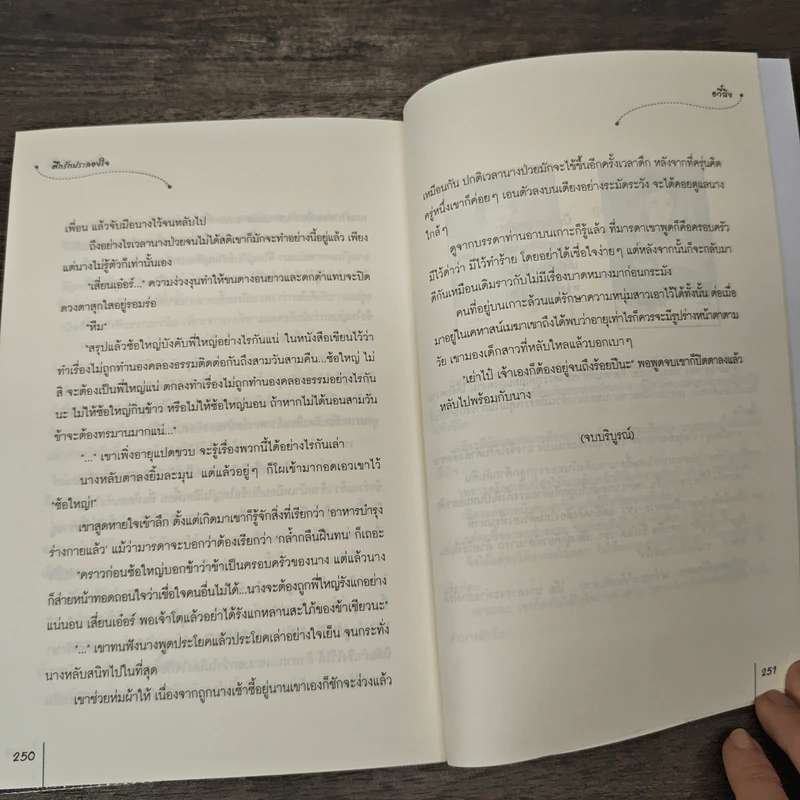 ศึกรักประลองใจ
เพื่อน แล้วจับมือนางไว้จนหลับไป
ถึงอย่างไรเวลานางป่วยจนไม่ได้สติเขาก็มักจะทำอย่างนี้อยู่แล้ว เพียง
แต่นางไม่รู้ตัวก็เท่านั้นเอง
"เสี่ยนเอ๋อร์..." ความง่วงงุนทำให้ขนตางอนยาวและดกดำแทบจะปิด
ดวงตาสุกใสอยู่รอมร่อ
"หืม"
"สรุปแล้วซ้อใหญ่บังคับพี่ใหญ่อย่างไรกันแน่ ในหนังสือเขียนไว้ว่า
ทำเรื่องไม่ถูกทำนองคลองธรรมติดต่อกันถึงสามวันสามคืน...ซ้อใหญ่ ไม่
สิ จะต้องเป็นพี่ใหญ่แน่ ตกลงทำเรื่องไม่ถูกทำนองคลองธรรมอย่างไรกัน
นะ ไม่ให้ซ้อใหญ่กินข้าว หรือไม่ให้ซ้อใหญ่นอน ถ้าหากไม่ได้นอนสามวัน
ข้าจะต้องทรมานมากแน่..."
"..." เขาเพิ่งอายุแปดขวบ จะรู้เรื่องพวกนี้ได้อย่างไรกันเล่า
นางหลับตาลงยิ้มละมุน แต่แล้วอยู่ๆ ก็โผเข้ามากอดเอวเขาไว้
"ซ้อใหญ่!"
เขาสูดหายใจเข้าลึก ตั้งแต่เกิดมาเขาก็รู้จักสิ่งที่เรียกว่า 'อาหารบำรุง
ร่างกายแล้ว' แม้ว่ามารดาจะบอกว่าต้องเรียกว่า 'กล้ำกลืนฝืนทน' ก็เถอะ
"คราวก่อนซ้อใหญ่บอกข้าว่าข้าเป็นครอบครัวของนาง แต่แล้วนาง
ก็ส่ายหน้าทอดถอนใจว่าเชื่อใจคนอื่นไม่ได้...นางจะต้องถูกพี่ใหญ่รังแกอย่าง
แน่นอน เสี่ยนเอ๋อร์ พอเจ้าโตแล้วอย่าได้รังแกหลานสะใภ้ของข้าเชียวนะ"
"..." เขาทนฟังนางพูดประโยคแล้วประโยคเล่าอย่างใจเย็น จนกระทั่ง
นางหลับสนิทไปในที่สุด
เขาช่วยห่มผ้าให้ เนื่องจากถูกนางเซ้าซี้อยู่นานเขาเองก็ชักจะง่วงแล้ว
250
อวี๋ฉิง
เหมือนกัน ปกติเวลานางป่วยมักจะไข้ขึ้นอีกครั้งเวลาดึก หลังจากที่ครุ่นคิด
ครู่หนึ่งเขาก็ค่อยๆ เอนตัวลงบนเตียงอย่างระมัดระวัง จะได้คอยดูแลนาง
ใกล้ๆ
ดูจากบรรดาท่านอาบนเกาะก็รู้แล้ว ที่มารดาเขาพูดก็คือครอบครัว
มีไว้ด่าว่า มีไว้ทำร้าย โดยอย่าได้เชื่อใจง่ายๆ แต่หลังจากนั้นก็จะกลับมา
ดีกันเหมือนเดิมราวกับไม่มีเรื่องบาดหมางมาก่อนกระมัง
คนที่อยู่บนเกาะล้วนแต่รักษาความหนุ่มสาวเอาไว้ได้ทั้งนั้น ต่อเมื่อ
มาอยู่ในเคหาสน์เมฆาเขาถึงได้พบว่าอายุเท่าไรก็ควรจะมีรูปร่างหน้าตาตาม
วัย เขามองเด็กสาวที่หลับใหลแล้วบอกเบาๆ
"เย่าไป๋ เจ้าเองก็ต้องอยู่จนถึงร้อยปีนะ" พอพูดจบเขาก็ปิดตาลงแล้ว
หลับไปพร้อมกับนาง
(จบบริบูรณ์)
251